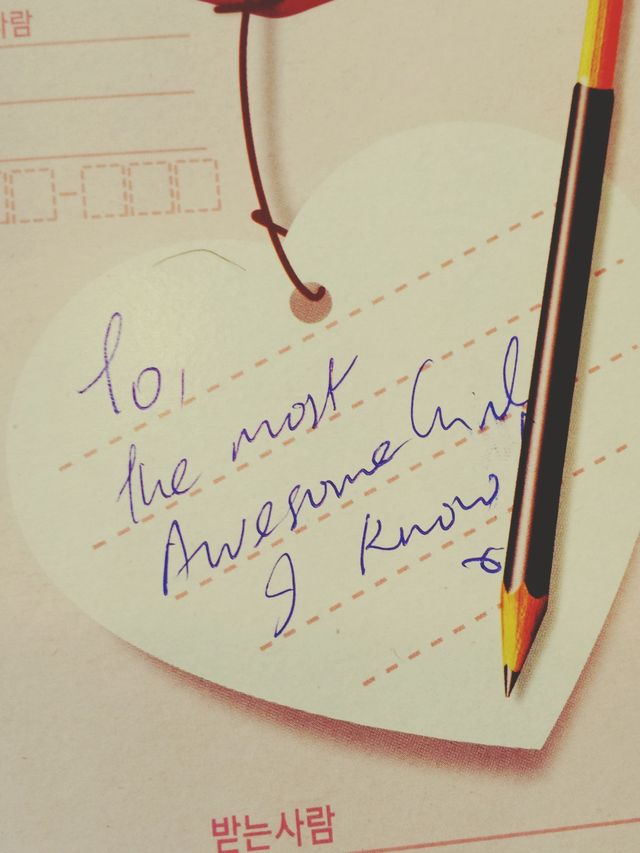 사람
To,
the most
Awesome Girl
I know
받는사람